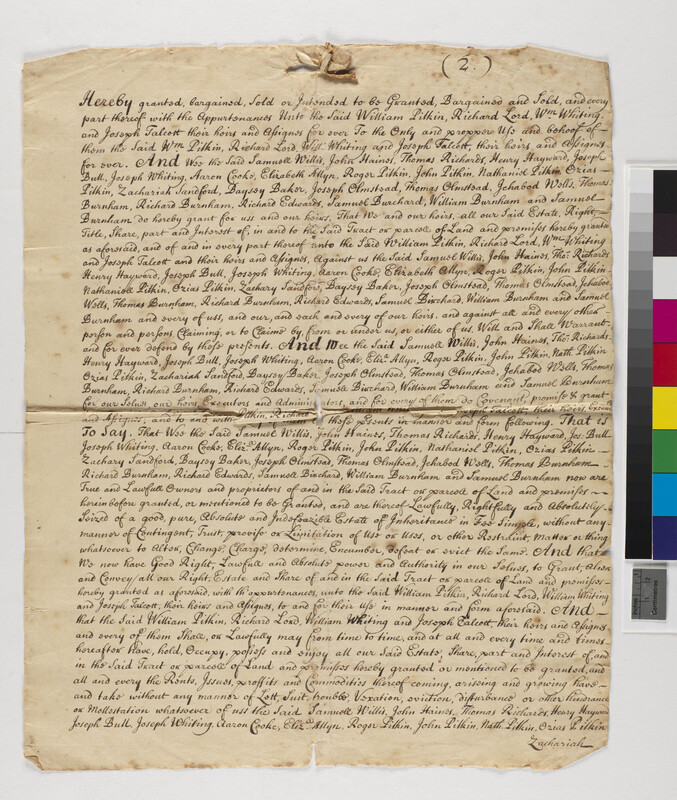 (2.)
Hereby granted, bargained, Sold or Intended to be Granted, Bargained and Sold, and every
part thereof with the Appurtenances Unto the Said William Pitkin, Richard Lord, Wm Whiting
and Joseph Talcott their heirs and Assignes for ever To the Only and propper Use and behoof of
them the Said Wm Pitkin, Richard Lord, Will: Whiting and Joseph Talcott, their heirs and Assignes
for ever. And Wee the Said Samuell Willis, John Haines, Thomas Richards, Henry Hayward, Joseph
Bull, Joseph Whiting, Aaron Cooke, Elizabeth Allyn, Roger Pitkin, John Pitkin, Nathaniel Pitkin Ozias
Pitkin, Zachariah Sandford, Baysey Baker, Joseph Olmstead, Thomas Olmstead, Jehabod Wells, Thomas
Burnham, Richard Burnham, Richard Edwards, Samuel Burchard, William Burnham and Samuel
Burnham do hereby grant for uss and our heirs, That We and our heirs, all our Said Estate, Right,
Title, Share, part and Interest of, in and to the Said Tract or parcele of Land and premisses hereby granted
as aforesaid, and of and in every part thereof unto the Said William Pitkin, Richard Lord, Wm Whiting
and Joseph Talcott and their heirs and Assignes, Against us the Said Samuel Willis, John Haines, Tho: Richards
Henry Hayward, Joseph Bull, Joseph Whiting, Aaron Cooke, Elizabeth Allyn, Roger Pitkin, John Pitkin
Nathaniell Pitkin, Ozias Pitkin, Zachary Sandford, Baysey Baker, Joseph Olmstead, Thomas Olmstead, Jehabod
Wells, Thomas Burnham, Richard Burnham, Richard Edwards, Samuel Burchard, William Burnham and Samuel
Burnham and every of us, and our, and each and every of our heirs, and against all and every other
person and persons Claiming, or to Claime by, from or under us, or either of us, Will and Shall Warrant
and for ever defend by these presents. And Wee the Said Samuell Willis, John Haines, Tho: Richards,
Henry Hayward, Joseph Bull, Joseph Whiting, Aaron Cooke, Eliz: Allyn, Roger Pitkin, John Pitkin, Nath. Pitkin
Ozias Pitkin, Zachariah Sandford, Baysey Baker, Joseph Olmstead, Thomas Olmstead, Jehabod Wells, Thomas
Burnham, Richard Burnham, Richard Edwards, Samuell Burchard, William Burnham and Samuel Burnham
for our Selves, our heirs, Executors and Administrators, and for every of them do Covenant, promise & grant
and Assignes, and to and with Pitkin, Richard these presents in manner and form following. That is
To Say. That Wee the Said Samuel Willis, John Haines, Thomas Richards, Henry Hayward, Jos: Bull
Joseph Whiting, Aaron Cooke, Eliz: Allyn, Roger Pitkin, John Pitkin, Nathaniel Pitkin, Ozias Pitkin
Zachary Sandford, Baysey Baker, Joseph Olmstead, Thomas Olmstead, Jehabod Wells, Thomas Burnham
Richard Burnham, Richard Edwards, Samuell Burchard, William Burnham and Samuel Burnham now are
True and Lawfull Owners and proprietors of and in the Said Tract or parcele of Land and premisses
hereinbefore granted, or mentioned to be Granted, and are thereof Lawfully, Rightfully and Absolutely
Seized of a good, pure, Absolute and Indefeazible Estate of Inheritance in Fee Simple, without any
manner of Contingent, Trust, proviso or Limitation of Use or Uses, or other Restraint, Matter or thing
whatsoever to Alter, Change, Charge, determine, Encumber, defeat or evict the Same. And that
We now have Good Right, Lawfull and Absolute power and Authority in our Selves, to Grant, Alien
and Convey all our Right, Estate and Share of and in the Said Tract or parcele of Land and premisses
hereby granted as aforesaid, with the appurtenances, unto the Said William Pitkin, Richard Lord, William Whiting
and Joseph Talcott, their heirs and Assignes, to and for their Use in manner and form aforesaid. And
that the Said William Pitkin, Richard Lord, William Whiting and Joseph Talcott, their heirs and Assignes
and every of them Shall, or Lawfully may from time to time, and at all and every time and times
hereafter Have, hold, Occupy, possess and enjoy all our Said Estate, Share, part and Interest of, and
in the Said Tract or parcele of Land and premisses hereby granted or mentioned to be granted, and
all and every the Rents, Issues, proffits and Commodities thereof coming, ariseing and growing have
and take without any manner of Lett, Suit, trouble, Vexation, eviction, disturbance or other hinderance
or Mollestation whatsoever of uss the Said Samuell Willis, John Haines, Thomas Richards, Henry Hayward
Joseph Bull, Joseph Whiting, Aaron Cooke, Eliz: Allyn, Roger Pitkin, John Pitkin, Nath. Pitkin, Ozias Pitkin
Zachariah
Centimetres